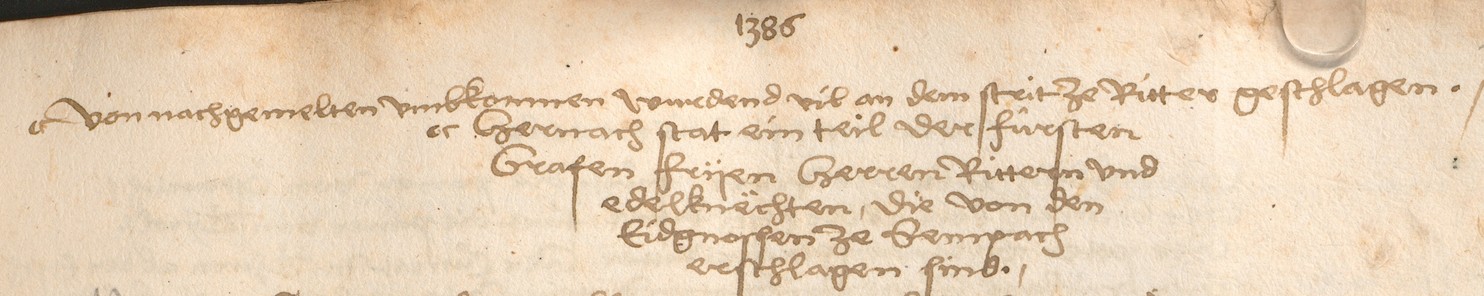 1386
Von nachgemelten umbkommen wurdend vil an dem strit ze Ritter geschlagen.
Hernach stat ein teil der fürsten
Grafen fryen Herren Rittern und
edelknëchten, die von den
Eidgnossen ze Sempach
erschlagen sind.